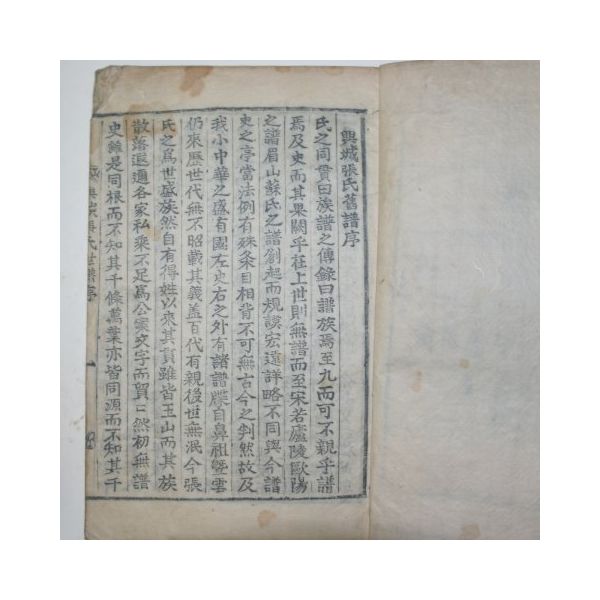 興城張氏舊譜序
氏之同貫曰族譜之傳錄曰譜族焉至九而可不親乎譜
焉及史而其果關乎在上世則無譜而至宋若廬陵歐陽
之譜眉山蘇氏之譜創起而規謨宏遠詳略不同與今譜
史之亭當法例有殊條目相背不可無古今之判然故及
我小中華之盛有國左史右之外有諸譜牒自鼻祖曁雲
仍來歷世代無不昭載其義盖百代有親後世無泯今張
氏之爲世盛族然自有得姓以來其貫雖皆玉山而其族
散落遐邇各家私乘不足爲公案文字而貿貿然初無譜
史雖是同根而不知其千條萬葉亦皆同源而不知其千
興城張氏世譜序 一